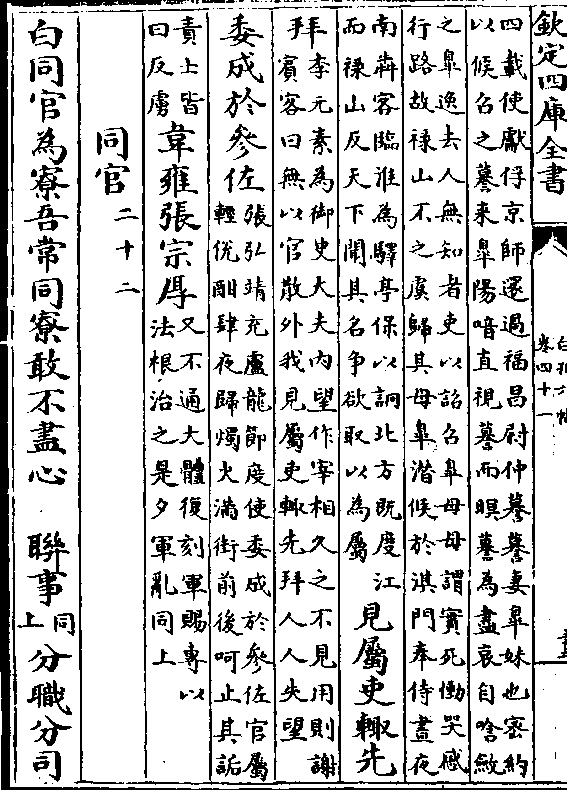 欽定四庫全書
白孔六帖
卷四十一
四載使獻俘京師還過福昌尉仲謩謩妻臯妹也密約
以候召之謩來臯陽喑直視謩而瞑謩為盡哀自啥斂
之臯逸去人無知者吏以詔召臯母母謂實死慟哭感
行路故禄山不之虞歸其母臯潛候於淇門奉侍晝夜
南犇客臨淮為驛亭保以詗北方既度江
而禄山反天下聞其名争欲取以為屬
見屬吏輙先
拜
李元素為御史大夫内望作宰相久之不見用則謝
賔客曰無以官散外我見屬吏輙先拜人人失望
委成於參佐
張弘靖充盧龍節度使委成於參佐官屬
輕侻酣肆夜歸燭火滿街前後呵止其詬
責士皆
曰反虜
韋雍張宗厚
又不通大體復刻軍賜專以
法根治之是夕軍亂同上
同官二十二
白同官為寮吾常同寮敢不盡心 聯事同上分職分司